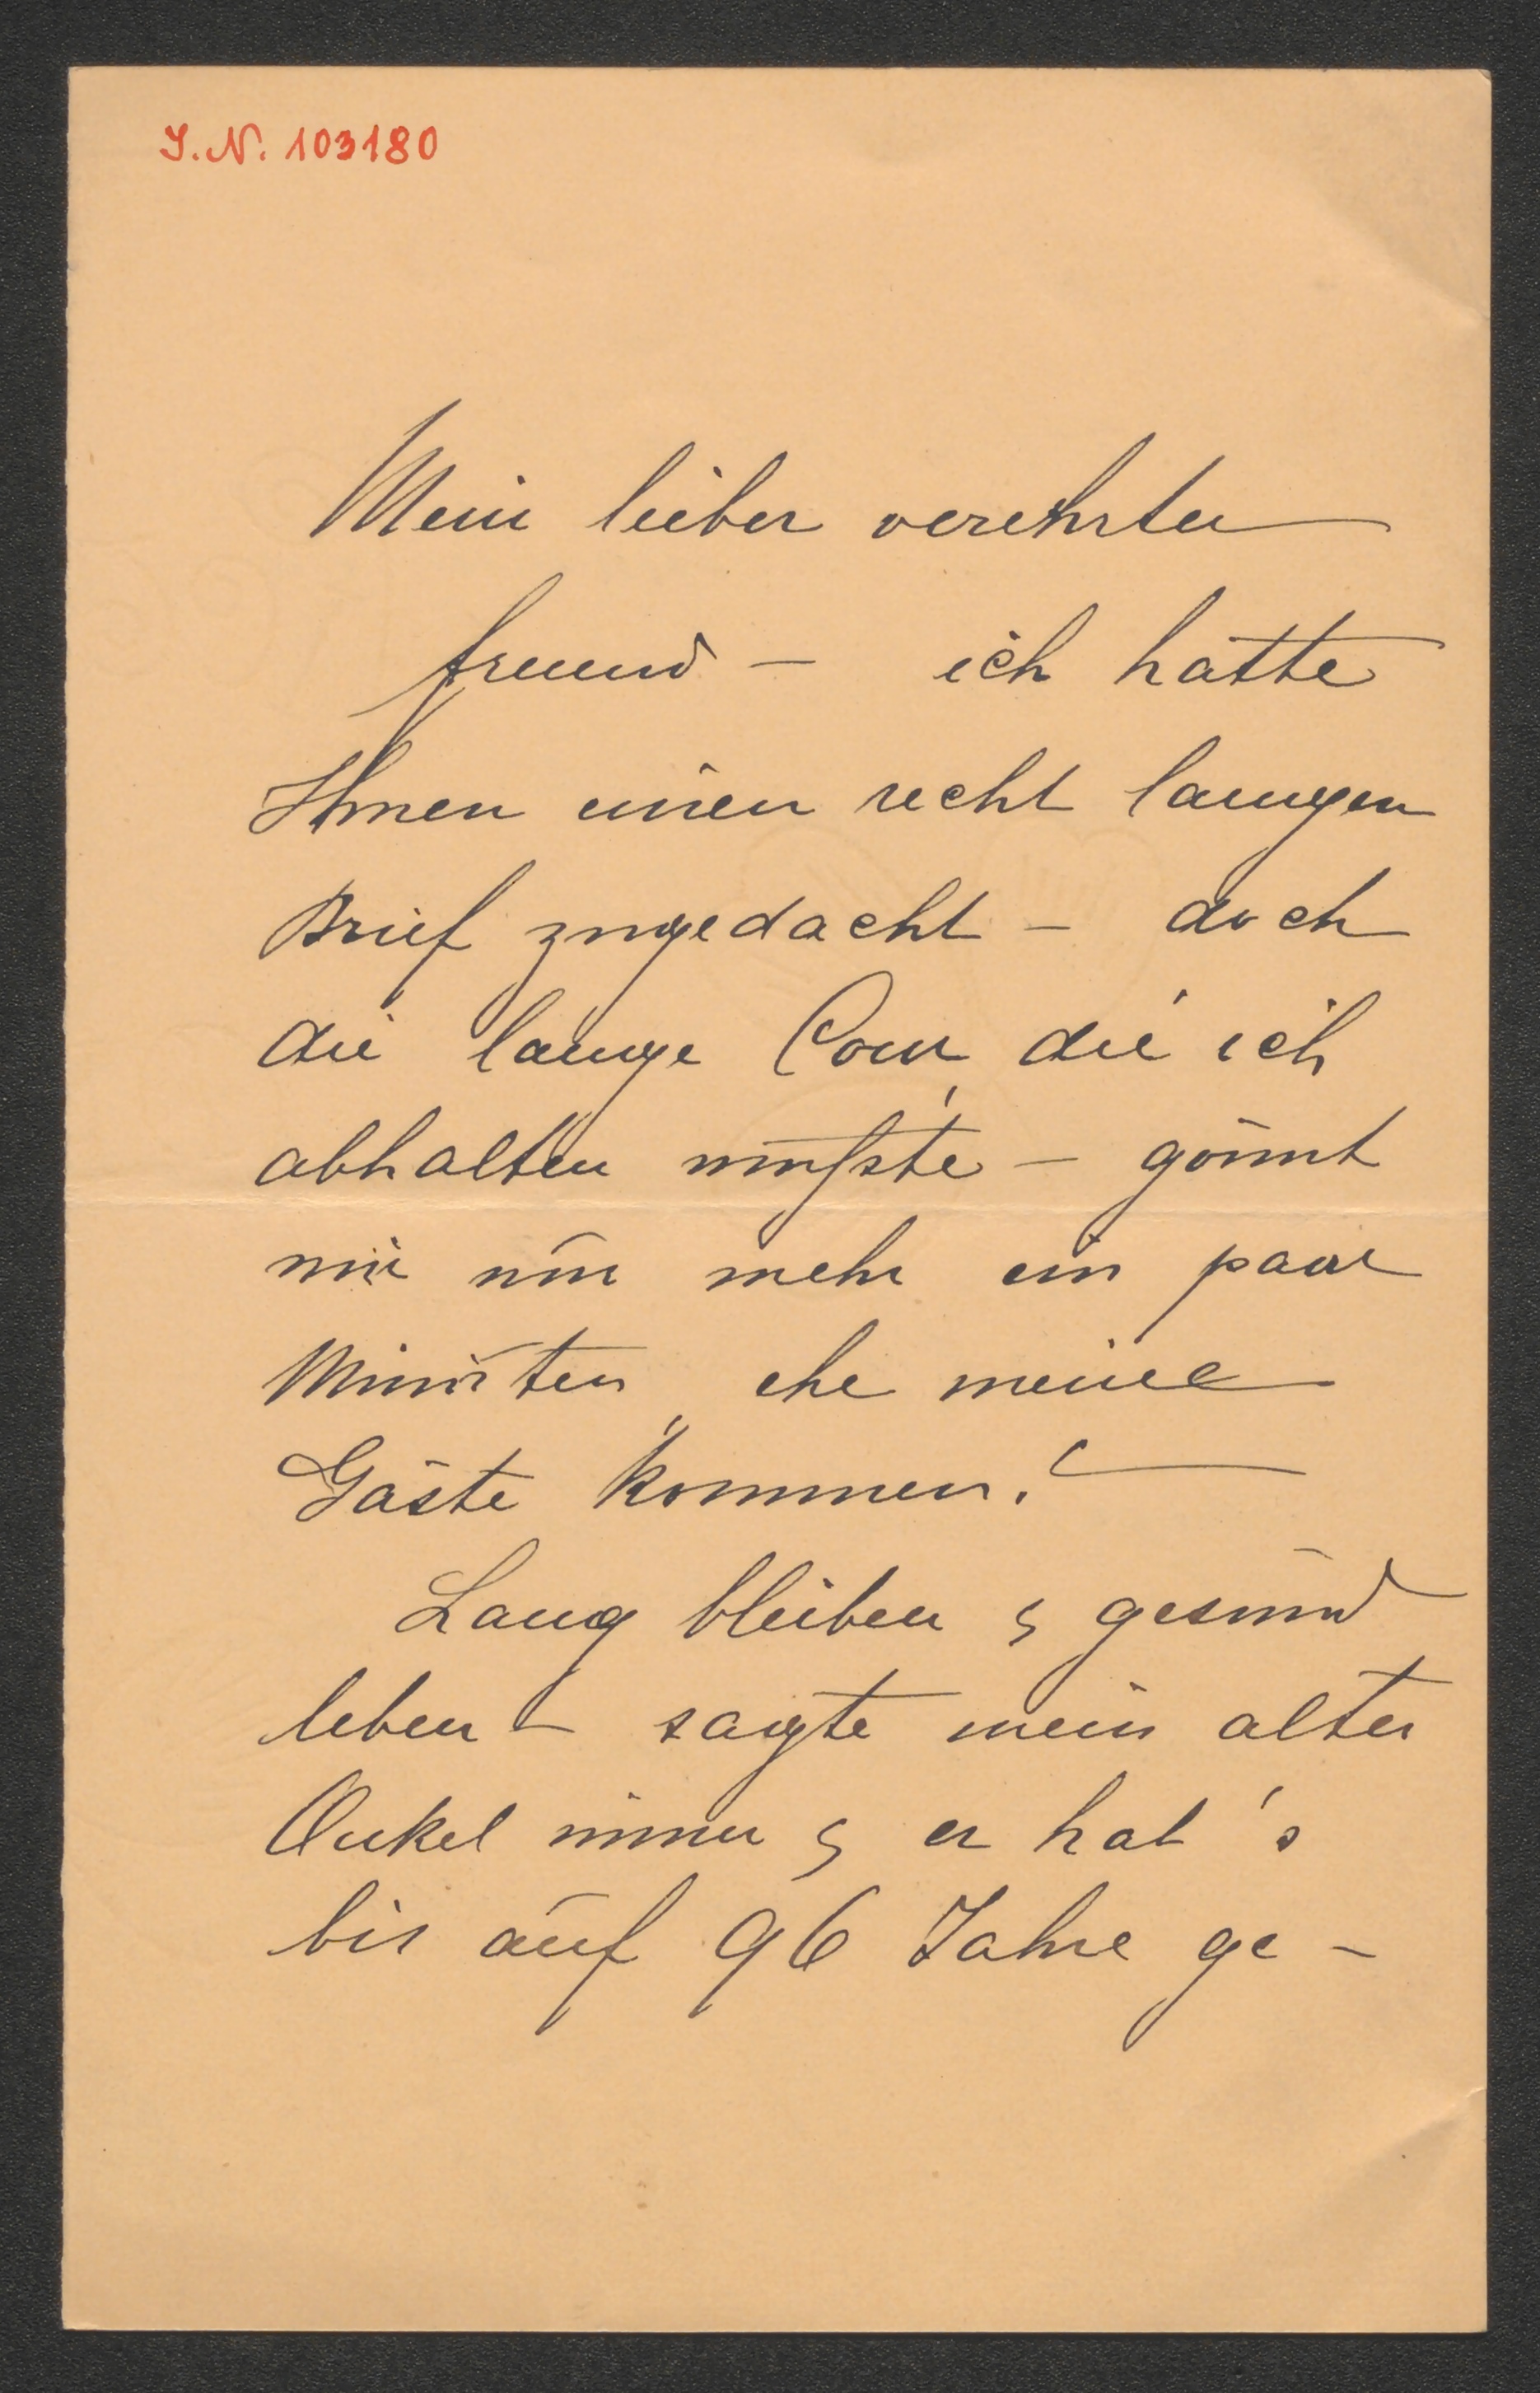 J. N. 103180
Mein lieber verehrter
Freund – ich hatte
Ihnen einen recht langen
Brief zugedacht – doch
die lange Cour, die ich
abhalten mußte – gönnt
mir nur mehr ein paar
Minuten, ehe meine
Gäste kommen!
Lang bleiben & gesund
leben – sagte mein alter
Onkel immer & er hat's
bis auf 96 Jahre ge-